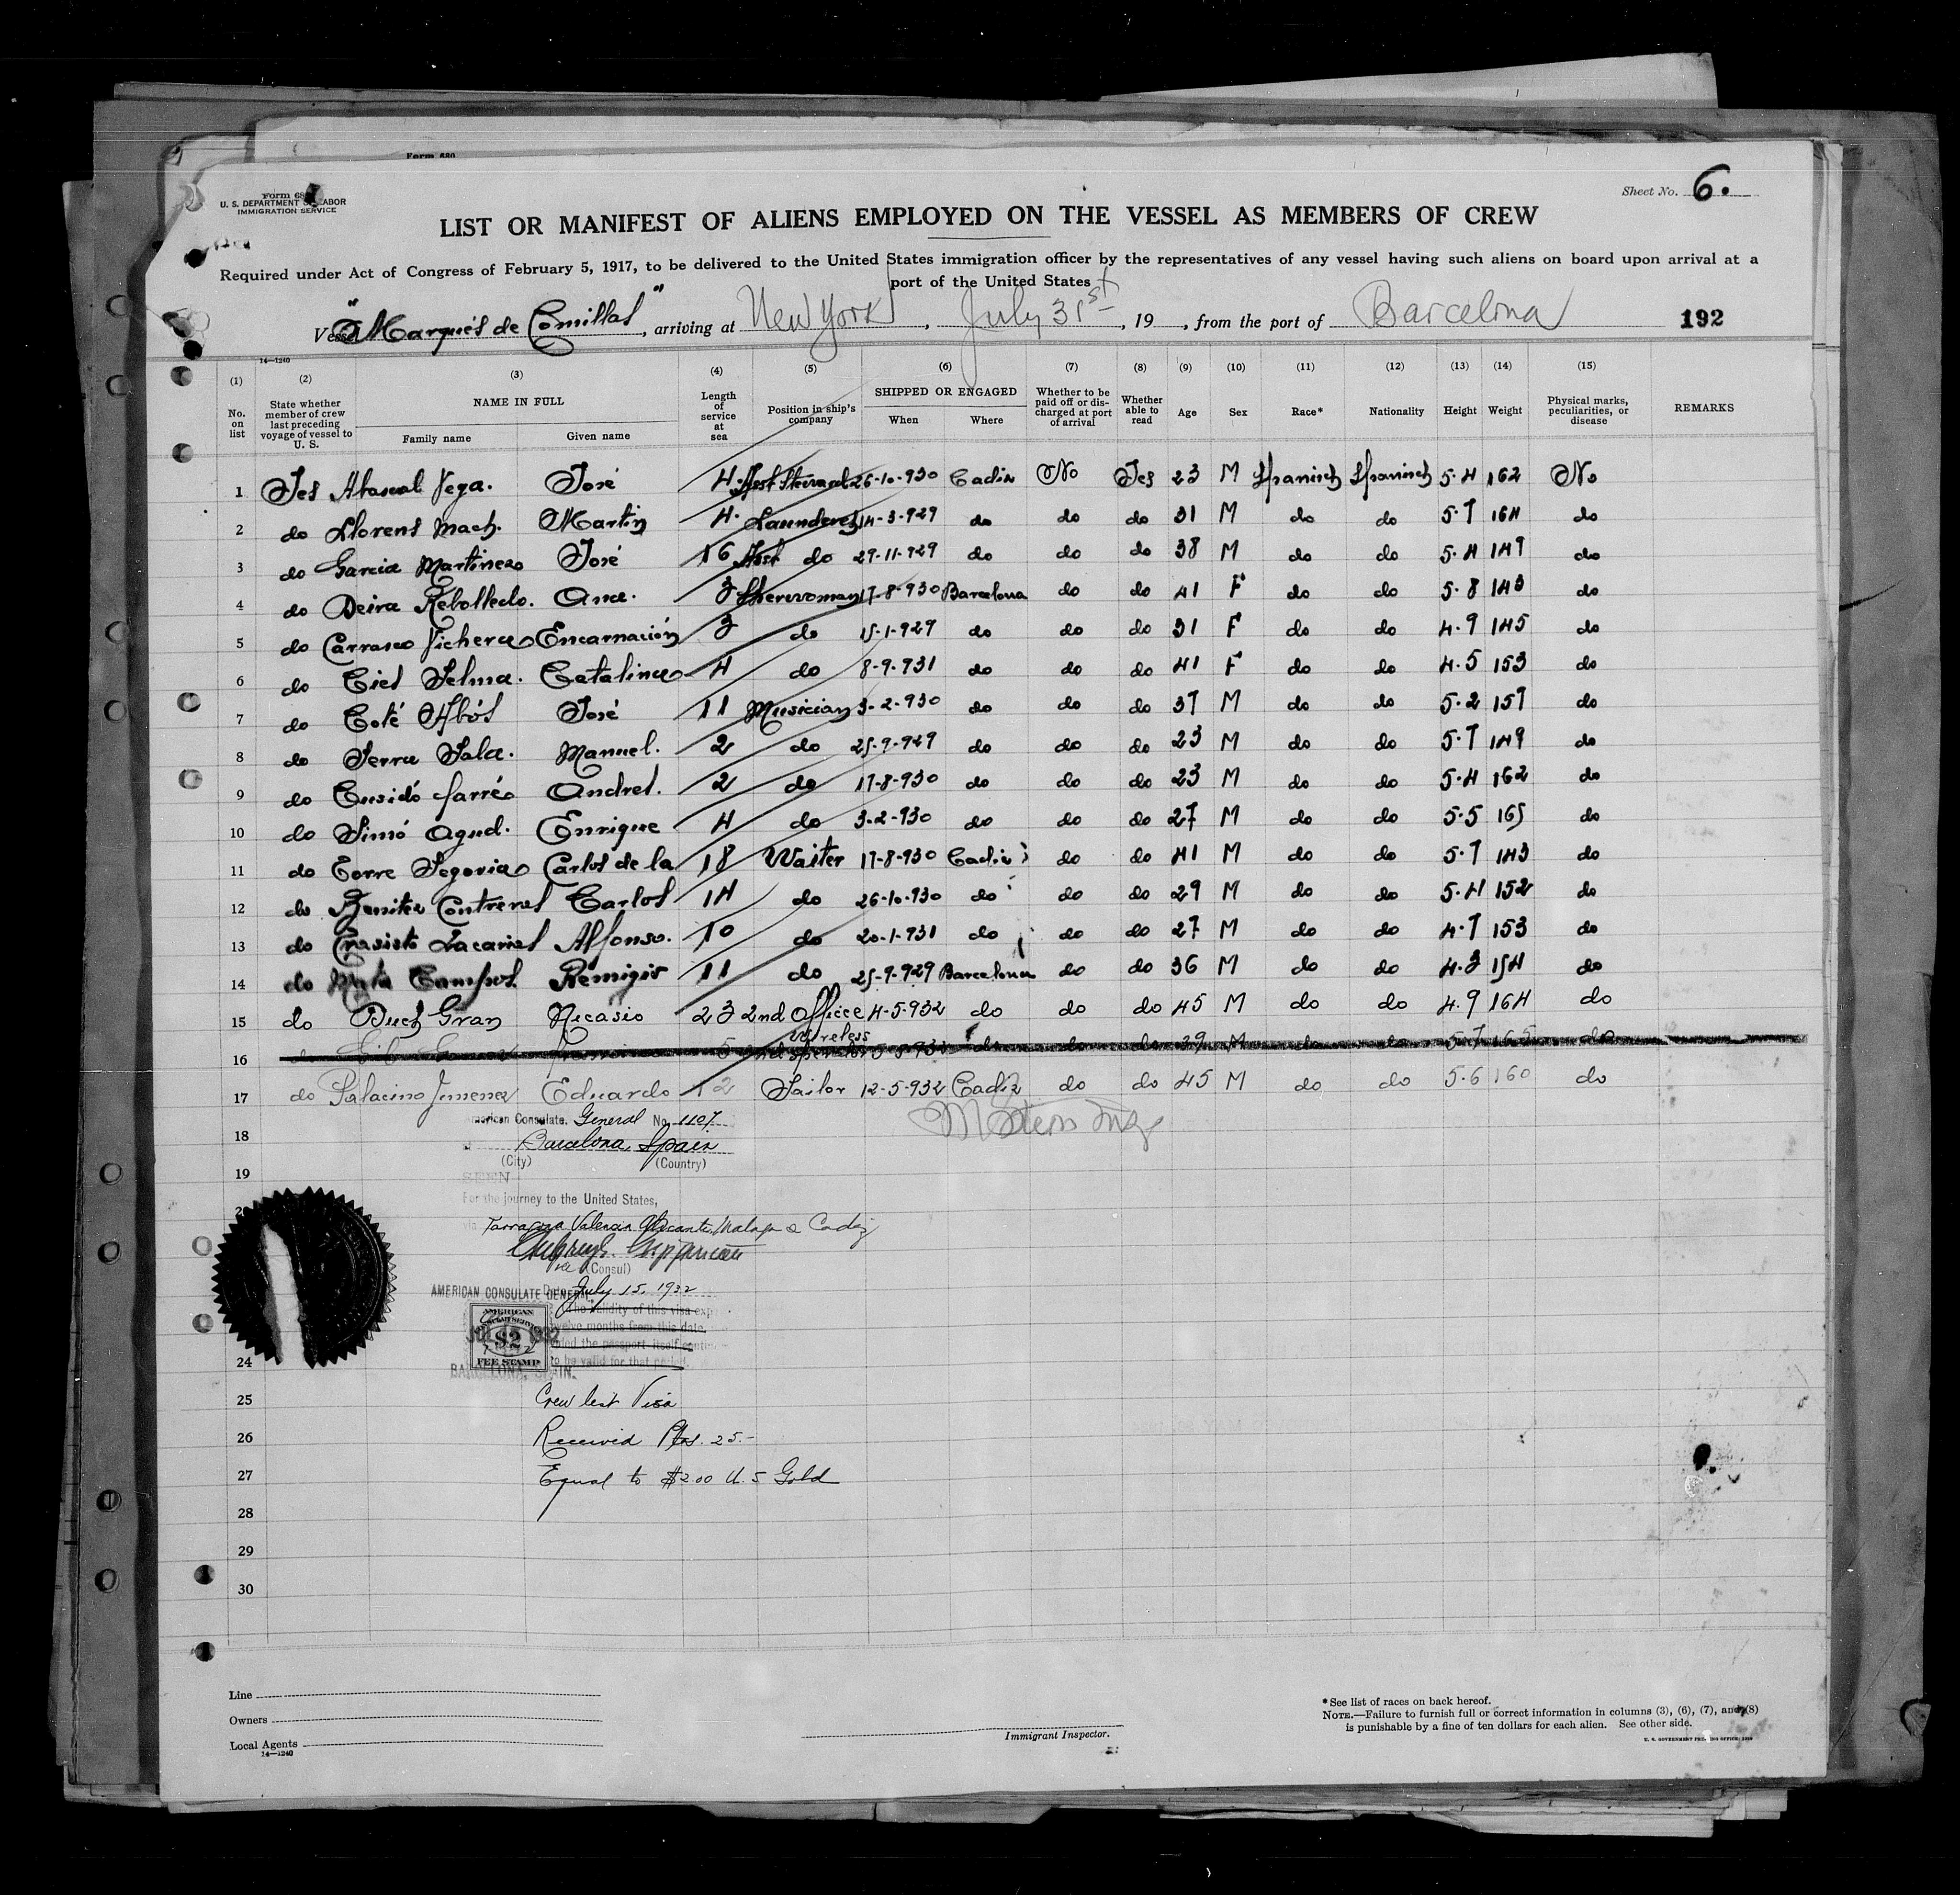 Form 680
Form 68
U. S. DEPARTMENT OF LABOR
IMMIGRATION SERVICE
Sheet No. 6.
LIST OR MANIFEST OF ALIENS EMPLOYED ON THE VESSEL AS MEMBERS OF CREW
Required under Act of Congress of February 5, 1917, to be delivered to the United States immigration officer by the representatives of any vessel having such aliens on board upon arrival at a
port of the United States
Vessel "Marqués de Comillas", arriving at New York, July 31st, 19 , from the port of Barcelona 192
14—1240
(1) (2) (3) (4) (5) (6) (7) (8) (9) (10) (11) (12) (13) (14) (15)
No. on list State whether member of crew last preceding voyage of vessel to U. S. NAME IN FULL Family name Given name Length of service at sea Position in ship's company SHIPPED OR ENGAGED When Where Whether to be paid off or discharged at port of arrival Whether able to read Age Sex Race* Nationality Height Weight Physical marks, peculiarities, or disease REMARKS
1 Yes Abascal Vega. José 4 Asst Steward 26-10-930 Cadiz No Yes 23 M Spanisch Spanisch 5-4 162 No
2 do Llorens Mach. Martin 4. Launderer 14-3-929 do do do 31 M do do 5-7 164 do
3 do Garcia Martinez José 16 Asst do 29-11-929 do do do 38 M do do 5-4 149 do
4 do Deira Rebolledo. Ana. 3 17-8-930 Barcelona do do 41 F do do 5-8 143 do
5 do Carrasco Encarnación 3 do 15-1-929 do do do 31 F do do 4-9 145 do
6 do Selma. Catalina 4 do 8-9-931 do do do 41 F do do 4-5 153 do
7 do Coté Abós José 11 Musician 3-2-930 do do do 37 M do do 5-2 157 do
8 do Serra Sala. Manuel. 2 do 25-9-929 do do do 23 M do do 5-7 149 do
9 do Cusidó Farré Andres. 2 do 17-8-930 do do do 23 M do do 5-4 162 do
10 do Simó Agud. Enrique 4 do 3-2-930 do do do 27 M do do 5-5 165 do
11 do Torre Segovia Carlos de la 18 Waiter 17-8-930 Cadiz do do 41 M do do 5-7 143 do
12 do Benitez Contreras Carlos 14 do 26-10-930 do do do 29 M do do 5-4 152 do
13 do Alfonso. 10 do 20-1-931 do do do 27 M do do 4-7 153 do
14 do Campos Remigio 11 do 25-9-929 Barcelona do do 36 M do do 4-3 154 do
15 do Duch Gran Nicasio 23 2nd Officer 4-5-932 do do do 45 M do do 4-9 164 do
16 5 2nd wireless operator do do do 39 M do do 5-7 165 do
17 do Palacino Jimenez Eduardo 12 Sailor 12-5-932 Cadiz do do 45 M do do 5-6 160 do
American Consulate General No. 1107
18 Barcelona, Spain
(City) (Country)
19
SEEN
For the journey to the United States,
via Tarragona Valencia Alicante, Malaga & Cadiz
(Consul)
AMERICAN CONSULATE GENERAL
Date July 15, 1932
The validity of this visa exp
twelve months from this date,
the passport itself
to be valid for that period.
AMERICAN
$2
FEE STAMP
BARCELONA, SPAIN.
24
25 Crew list Visa
26 Received Ptas. 25.-
27 Equal to $2.00 U. S Gold
28
29
30
Line
Owners
Local Agents
14—1240
Immigrant Inspector.
* See list of races on back hereof.
NOTE.—Failure to furnish full or correct information in columns (3), (6), (7), and (8)
is punishable by a fine of ten dollars for each alien. See other side.